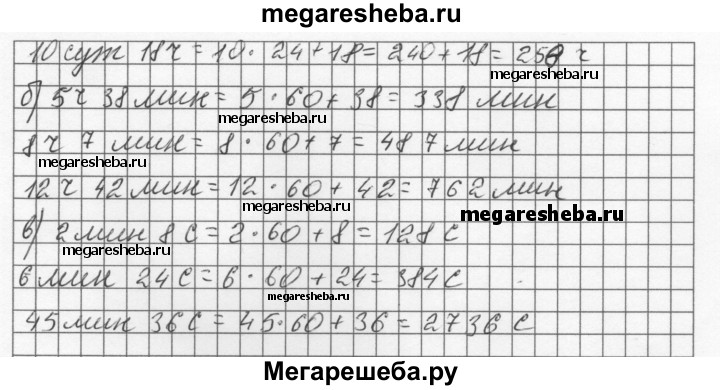 megaresheba.ru
10 сут 18 ч = 10 · 24 + 18 = 240 + 18 = 258 ч
megaresheba.ru
б) 5 ч 38 мин = 5 · 60 + 38 = 338 мин
megaresheba.ru
8 ч 7 мин = 8 · 60 + 7 = 487 мин
megaresheba.ru
12 ч 42 мин = 12 · 60 + 42 = 762 мин
megaresheba.ru
в) 2 мин 8 с = 2 · 60 + 8 = 128 с
megaresheba.ru
6 мин 24 с = 6 · 60 + 24 = 384 с
megaresheba.ru
45 мин 36 с = 45 · 60 + 36 = 2736 с
Мегарешеба.ру